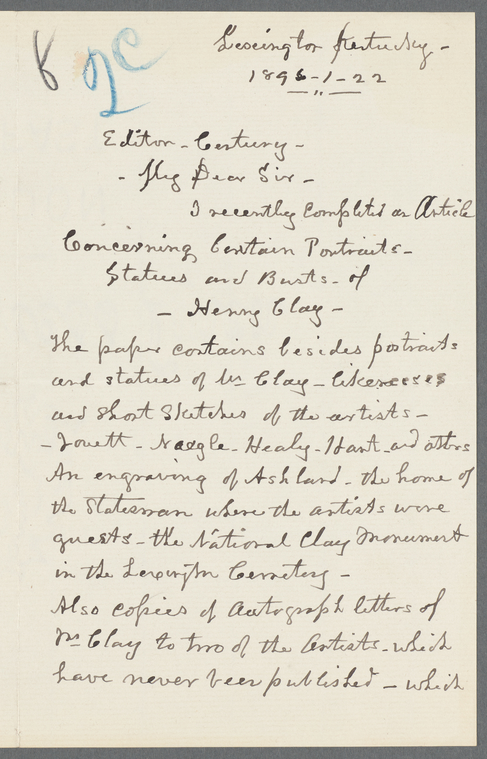 Lexington Kentucky -
1896-1-22
Editor - Century -
- My Dear Sir -
I recently completed an Article
Concerning Certain Portraits -
Statues and Busts - of
- Henry Clay -
The paper contains besides portraits
and statues of Mr Clay - likenesses
and short Sketches of the artists -
- Jouett - Neagle - Healy - Hart - and others
An engraving of Ashland - the home of
the Statesman where the artists were
guests - the National Clay Monument
in the Lexington Cemetery -
Also copies of Autograph letters of
Mr Clay to two of the Artists - which
have never been published - which